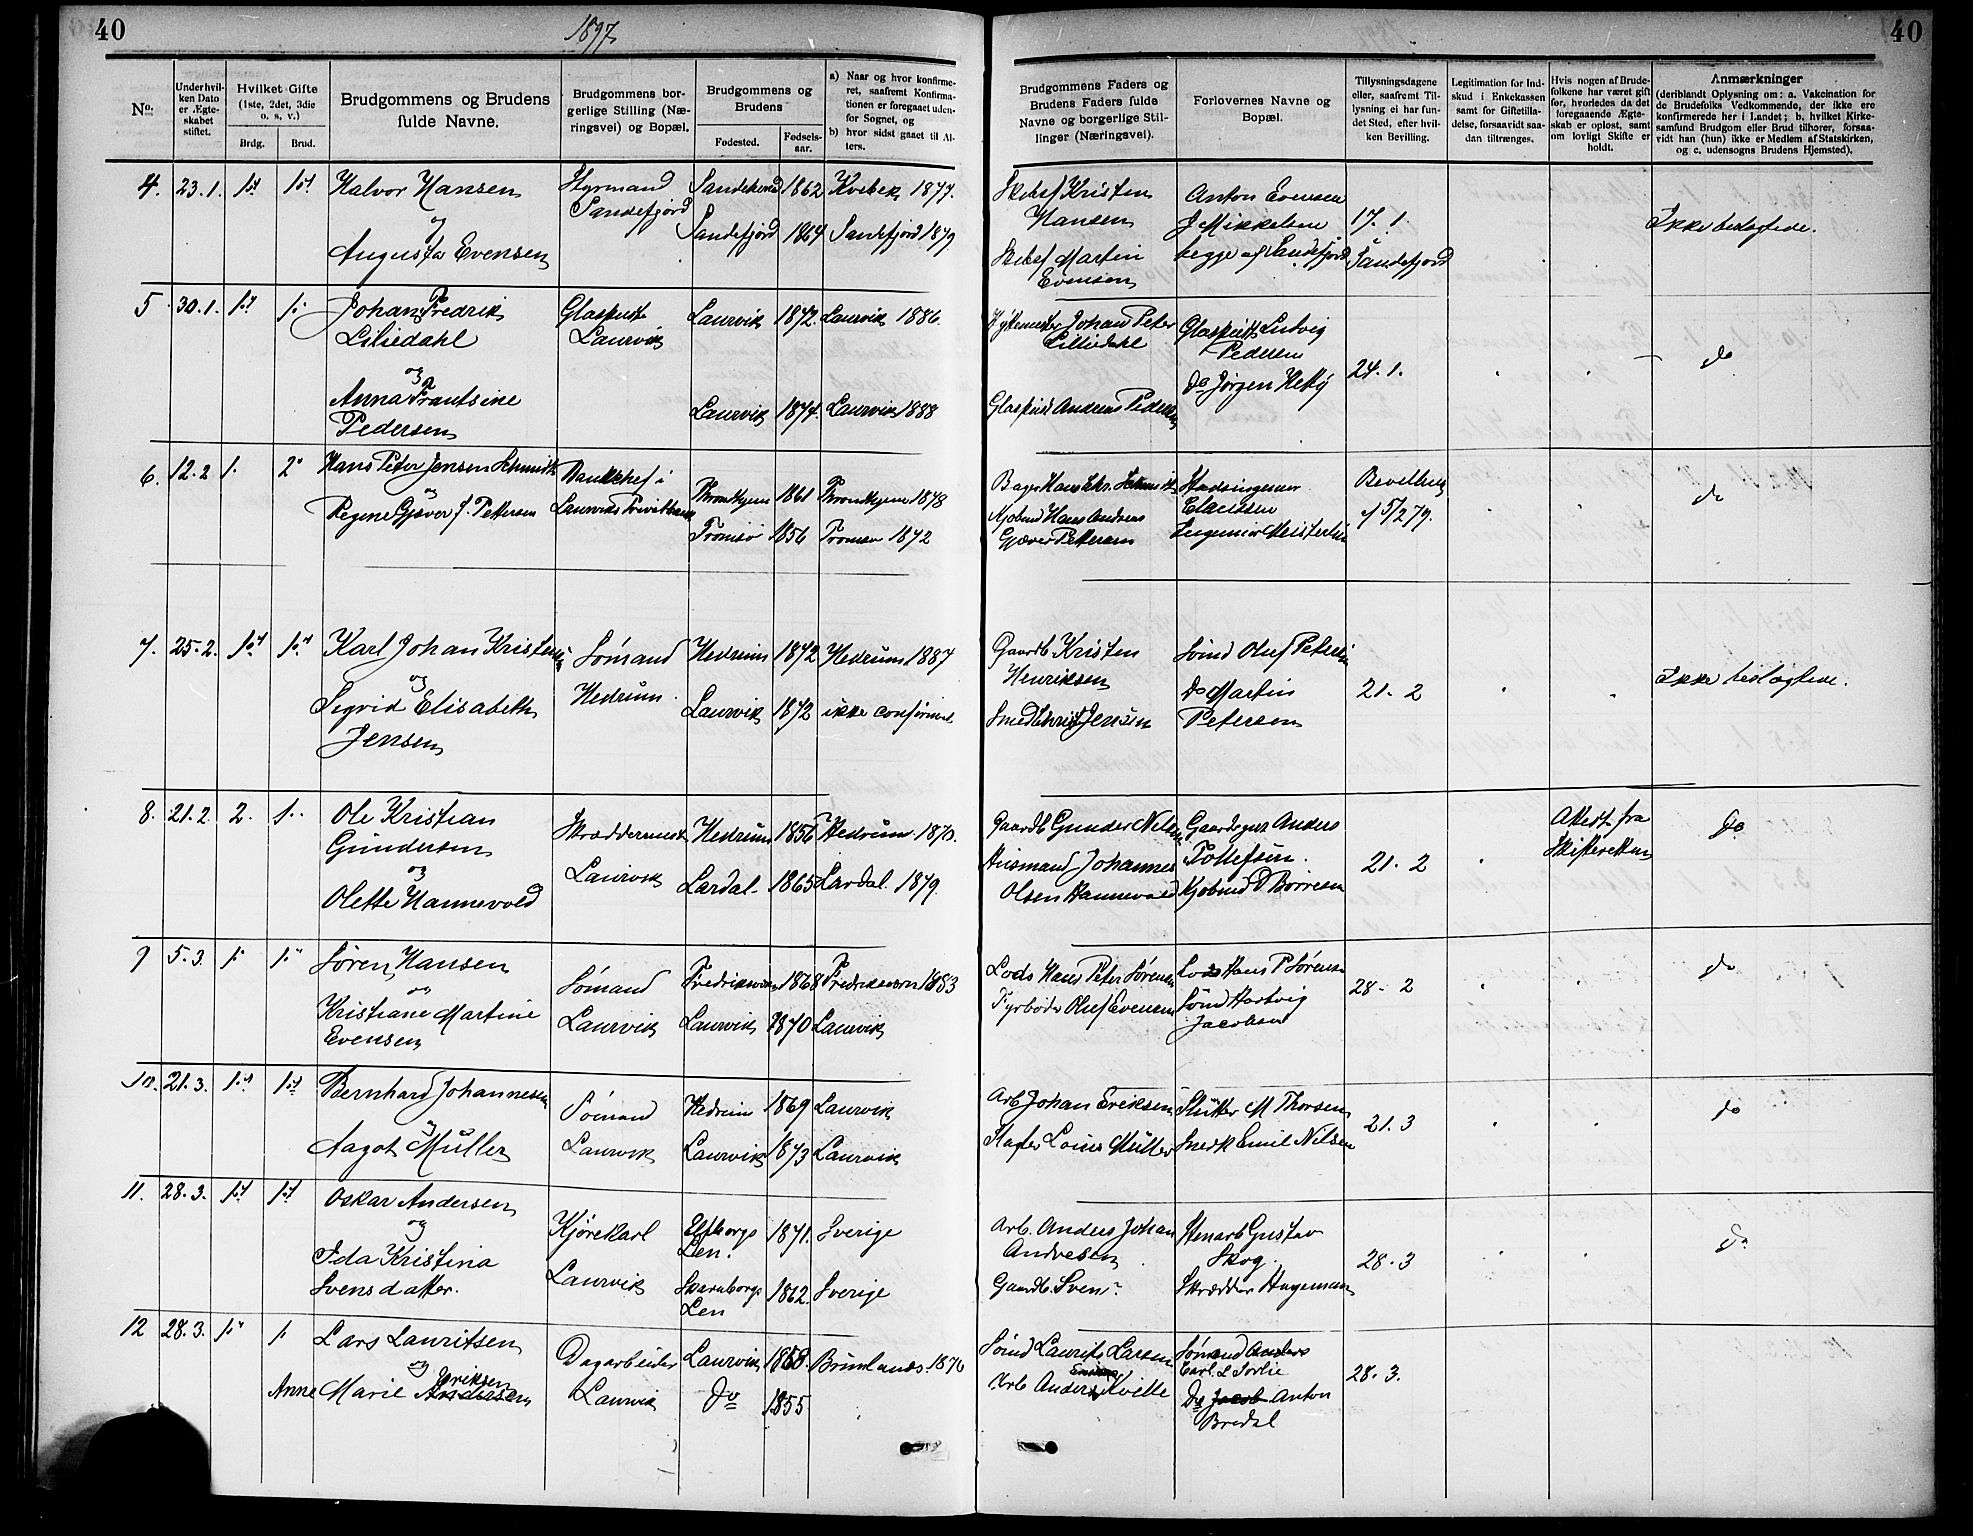 40
1897
40
No.
Under hvil-
ken Dato
er Ægte-
skabet
stiftet.
Hvilket Gifte
(1ste, 2det, 3die
o. s. v.)
Brdg.
Brud.
Brudgommens og Brudens
fulde Navne.
Brudgommens bor-
gerlige Stilling (Næ-
ringsvei) og Bopæl.
Brudgommens og
Brudens
Fødested.
Fødsels-
aar.
a) Naar og hvor konfirme-
ret, saafremt Konfirma-
tionen er foregaaet uden-
for Sognet, og
b) hvor sidst gaaet til Al-
ters.
Brudgommens Faders og
Brudens Faders fulde
Navne og borgerlige Stil-
linger (Næringsvei).
Forlovernes Navne og
Bopæl.
Tillysningsdagene
eller, saafremt Til-
lysning ei har fun-
det Sted, efter hvil-
ken Bevilling.
Legitimation for Ind-
skud i Enkekassen
samt for Giftetilla-
delse, forsaavidt saa-
dan tiltrænges.
Hvis nogen af Brude-
folkene har været gift
før, hvorledes da det
foregaaende Ægte-
skab er opløst, samt
om lovligt Skifte er
holdt.
Anmærkninger
(deriblandt Oplysning om: a. Vakcination for
de Brudefolks Vedkommende, der ikke ere
konfirmerede her i Landet; b. hvilket Kirke-
samfund Brudgom eller Brud tilhører, forsaa-
vidt han (hun) ikke er Medlem af Statskirken,
og c. udensogns Brudens Hjemsted).
4. 23.1. 1st 1st Halvor Hansen
og
Augusta Evensen
Styrmand
Sandefjord
Sandeherred 1862 Kvebek 1877.
Sandefjord 1864 Sandefjord 1879
Skibsf Kristen
Hansen
Skibsf Martin
Evensen
Anton Evensen
J Mikkelsen
begge af Sandefjord
17. 1.
Sandefjord
Ikke beslægtede.
5 30.1. 1st 1. Johan Fredrik
Liliedahl
og
Anna Frantsine
Pedersen
Glaspust
Laurvik
Laurvik 1872. Laurvik 1886.
Laurvik 1874. Laurvik 1888
Hyttemester Johan Peter
Lilliedahl
Glaspust Andreas Pedersen
Glaspust Ludvig
Pedersen
Do Jørgen Helty
24.1.
do
6. 12.2 1. 2. Hans Peter Jensen Schmidt
og
Regine Gjæver f. Pettersen
Bankchef i
Laurviks Privatbank
Throndhjem 1861 Throndhjem 1878
Tromsø 1856 Tromsø 1872
Bager Hans Chr. Schmidt
Kjøbmd Hans Andreas
Gjæver Pettersen
Stadsingeniør
Claussen
Ingeniør Meisterlin
Bevilling
af 5/2 79.
do
7. 25.2. 1st 1st Karl Johan Kristensen
og
Sigrid Elisabeth
Jensen
Sømand
Hedrum
Hedrum 1872 Hedrum 1887
Laurvik 1872 ikke confirmert
Gaardb Kristen
Henriksen
Smed Christ Jensen
Sømd Oluf Petersen
Do Martin
Petersen
21. 2
Ikke beslægtede.
8. 21.2 2. 1. Ole Kristian
Gundersen
og
Olette Hannevold
Skræddermest
Laurvik
Hedrum 1856 Hedrum 1870.
Lardal. 1865 Lardal 1879.
Gaardb Gunder Nilsen
Husmand Johannes
Olsen Hannevold
Gaardeger Anders
Tollefsen.
Kjøbmd D Børresen
21. 2
Attest fra
Skifteretten
do
9 5.3. 1. 1. Søren Hansen
og
Kristiane Martine
Evensen
Sømand
Laurvik
Fredriksværn 1868 Fredriksværn 1883
Laurvik 1870 Laurvik
Lods Hans Peter Sørensen
Fyrbøder Oluf Evensen
Lods Hans P Sørensen
Sømd Hartvig
Jacobsen
28. 2
do
10. 21.3. 1st 1st Bernhard Johannesen
og
Aagot Müller
Sømand
Laurvik
Hedrum 1869 Laurvik
Laurvik 1873 Laurvik
Arb Johan Eriksen
Slagter Louis Müller
Slutter M Thorsen
Snedk Emil Nilsen
21. 3
do
11. 28.3. 1st 1st Oskar Andersen
og
Ida Kristina
Svensdatter.
Kjørekarl
Laurvik
Elfsborgs
Len. 1871. Sverige
Skaraborgs
Len 1862. Sverige
Arb. Anders Johan
Andresen
Gaardb. Sven
Stenarb Gustav
Skog.
Skrædder Hageman
28.3
do
12 28.3. 1st 1 Lars Lauritsen
og Eriksen
Anne Marie Andersen
Dagarbeider
Laurvik
Laurvik 1858. Brunlanæs 1876
Do 1855
Sømd Laurits Larsen
Arb Anders Kvelle
Sømand Anders
Carl L Sorlie
Do Jacob Anton
Bredal
28.3.